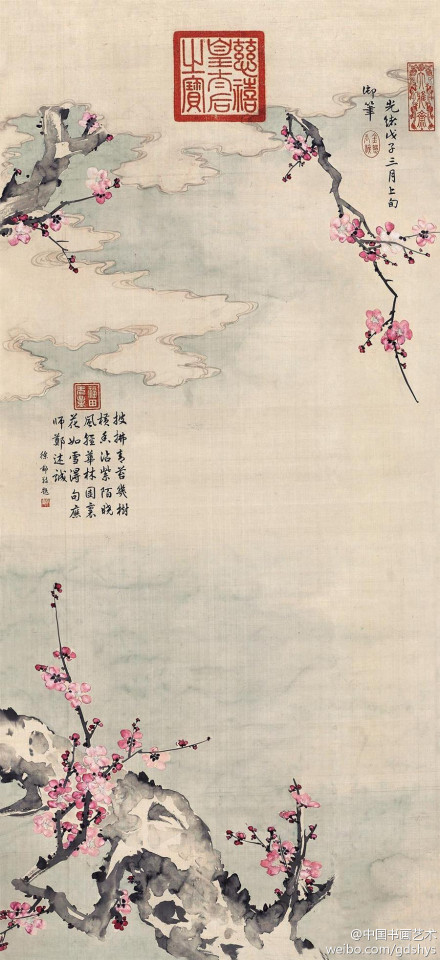 慈禧
皇太后
之寶
大雅齋
光緒戊子三月上旬
御筆
披拂青苔幾樹
橫香沾紫陌曉
風輕華林園裏
花如雪得句應
師鄭述誠
徐郙敬題
@中国书画艺术
weibo.com/gdshys